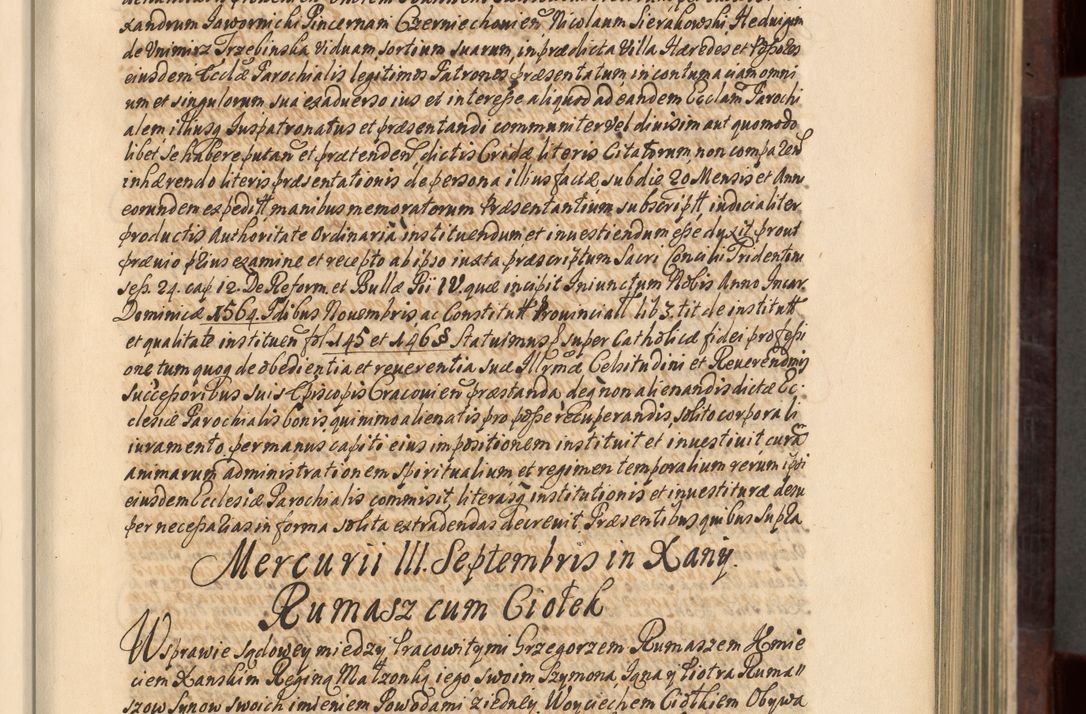 xandrum Jawornicki Pincernam Czerniechovien̄ Nicolaum Sierakowski, Hedvigem
de Unimirz Trzebinska viduam, sortium suarum, in prædicta Villa Hæredes et Possess̄es
eiusdem Eccłæ Parochialis legitimos Patronos præsentatum in contumaciam omni
um et singulorum sua ex adverso ius et interesse aliquod ad eandem Ecclam Parochi
alem illiusq Juspatronatus et præsentandi communiter vel divisim aut quomodo
libet se habere putan̄ et prætenden̄ dictis Cridæ literis Citatorum non comparen̄
inhærendo literis præsentationis de persona illius factæ sub die 20 Mensis et Anni
eorundem expeditt manibus memoratorum Præsentantium subscriptt iudicialiter
productis Authoritate Ordinaria instituendum et investiendum esse duxit prout
prævio prius examine et recepto ab ipso iuxta præscriptum Sacri Concilii Tridentini
sess. 24. cap 12. De Reform. et Bullæ Pii IV. quæ incipit Iniunctum Nobis Anno Incar.
Dominicæ 1564. Idibus Novembris ac Constitutt Provinciall lib 3. tit de institutt
et qualitate instituen̄ fol 145 et 146 § Statuimus § super Catholicæ fidei professi
one tum quoq de obedientia et reverentia suæ Illrmæ Celsitudini et Reverendmis
Successoribus suis Episcopis Cracovien̄ præstanda deq non alienandis dictæ Ec:
clesiæ Parochialis bonis quinimmo alienatis pro posse recuperandis, solito corporali
iuramento, per manus capiti eius impositionem instituit et investivit curā
animarum administrationem spiritualium et regimen temporalium rerum ipsi
eiusdem Ecclesiæ Parochialis commisit, literasq institutionis et investituræ desu
per necessarias in forma solita extradendas decrevit. Præsentibus quibus supra
Mercurii III. Septembris in Xany.
Rumasz cum Ciołek
W sprawie sądowey między Pracowitymi Grzegorzem Rumaszem Kmie
ciem Xanskim Reginą Małzonką iego swoim Szymona, Jana y Piotra Ruma⸗
szow Synow swoich imieniem Powodami z iedney, Woyciechem Ciołkiem Obywa